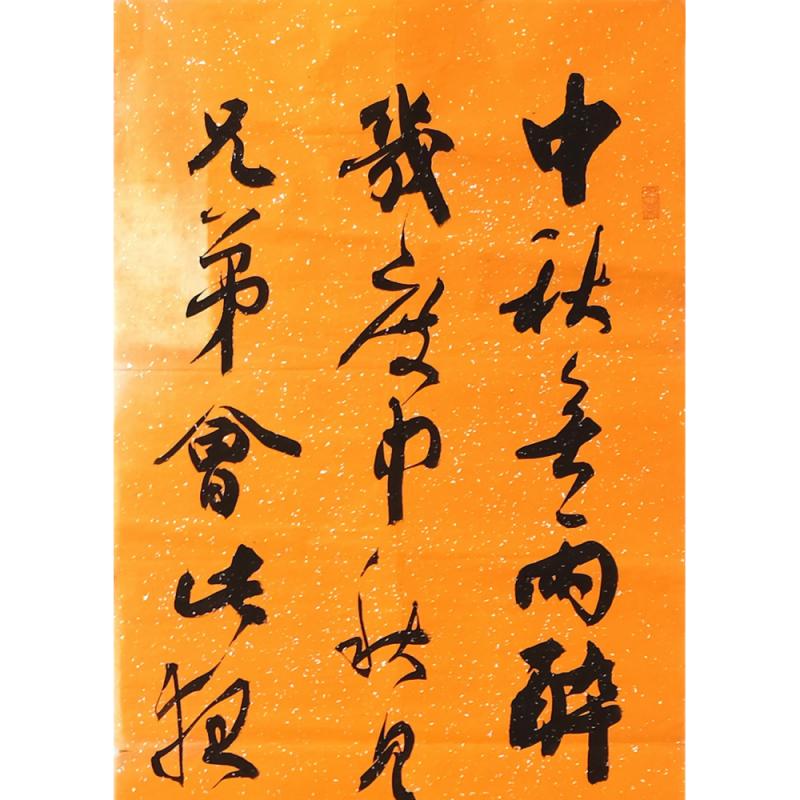 中秋無雨醉
幾度中秋見
兄弟會此